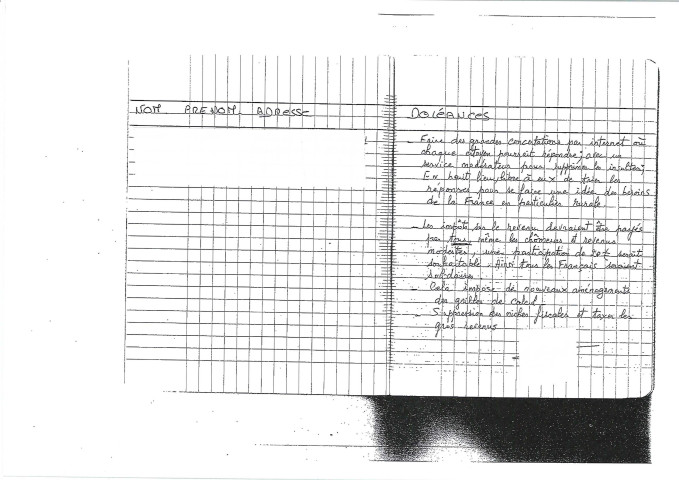 NOM. PRENOM. ADRESSE
DOLÉANCES
- Faire des grandes concertations par internet où
chaque citoyen pourrait répondre, avec un
service modérateur pour supprimer les insultes,
En haut lieu libre à eux de trier les
réponses pour se faire une idée des besoins
de la France en particulier rurale.
- Les impôts sur le revenu devraient être payés
par tous même les chômeurs et revenus
modestes, une participation de serait
souhaitable. Ainsi tous les Français seraient
solidaires
- Cela impose de nouveaux aménagements
des grilles de calcul.
- Suppression des niches fiscales et taxer les
gros revenus